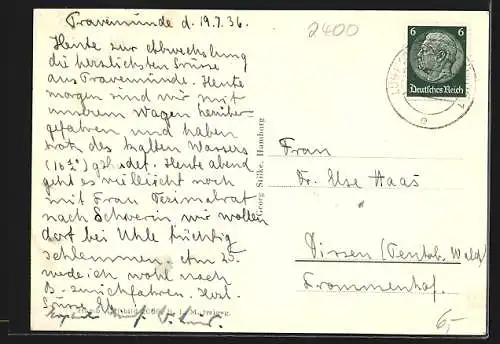 Travemünde d. 19.7.36.
2400
Heute zur Abwechslung
die herzlichsten Grüsse
aus Travemünde. Heute
morgen sind wir mit
unserem Wagen herüber
gefahren und haben
trotz des kalten Wassers
(16½°) gebadet. Heute abend
geht es vielleicht noch
mit Frau
nach Schwerin wir wollen
dort bei Uhle tüchtig
schlemmen. Am 25.
werde ich wohl nach
B. zurückfahren. Herzl.
Grüsse
Georg Stilke, Hamburg
6 6
Deutsches Reich
Frau
Dr. Ilse Haas
Dissen (Teutob. Wald)
Frommenhof.
6,-